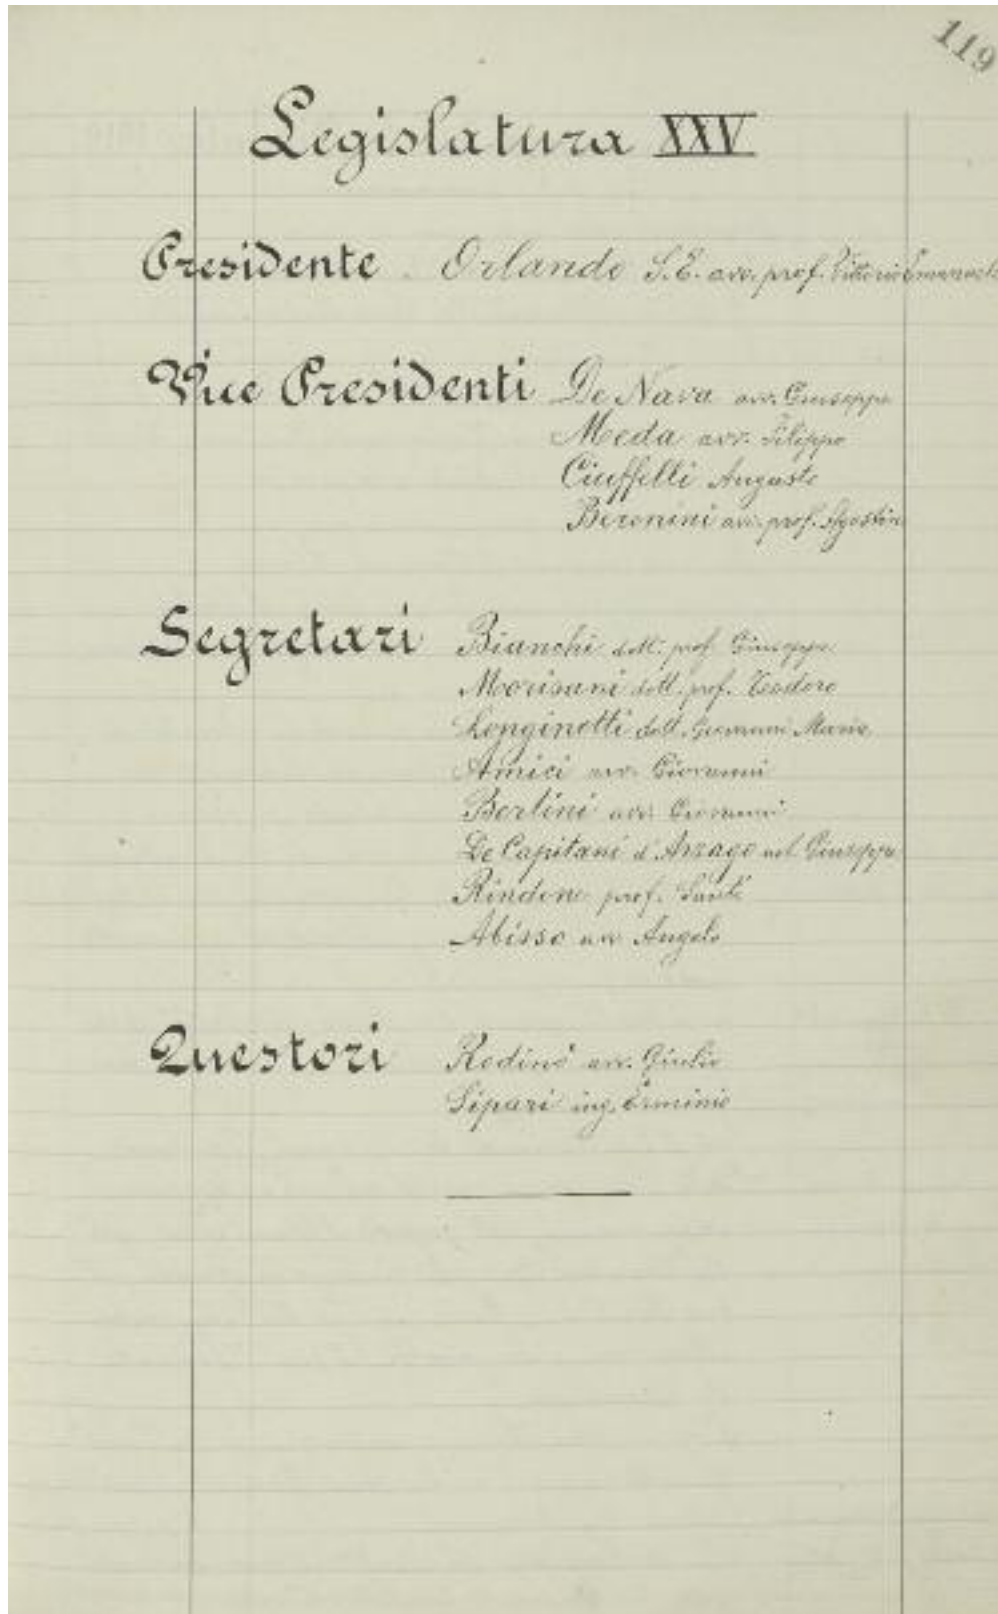 119
Legislatura XXV
Presidente Orlando S.E. avv. prof. Vittorio Emanuele
Vice Presidenti De Nava avv. Giuseppe
Meda avv. Filippo
Ciuffelli Augusto
Berenini avv. prof. Agostino
Segretari Bianchi dott. prof. Giuseppe
Morisani dott. prof. Teodoro
Longinotti dott. Giovanni Maria
Amici avv. Giovanni
Bertini avv. Giovanni
De Capitani d'Arzago nob. Giuseppe
Rindone prof. Santi
Abisso avv. Angelo
Questori Rodinò avv. Giulio
Sipari ing. Erminio